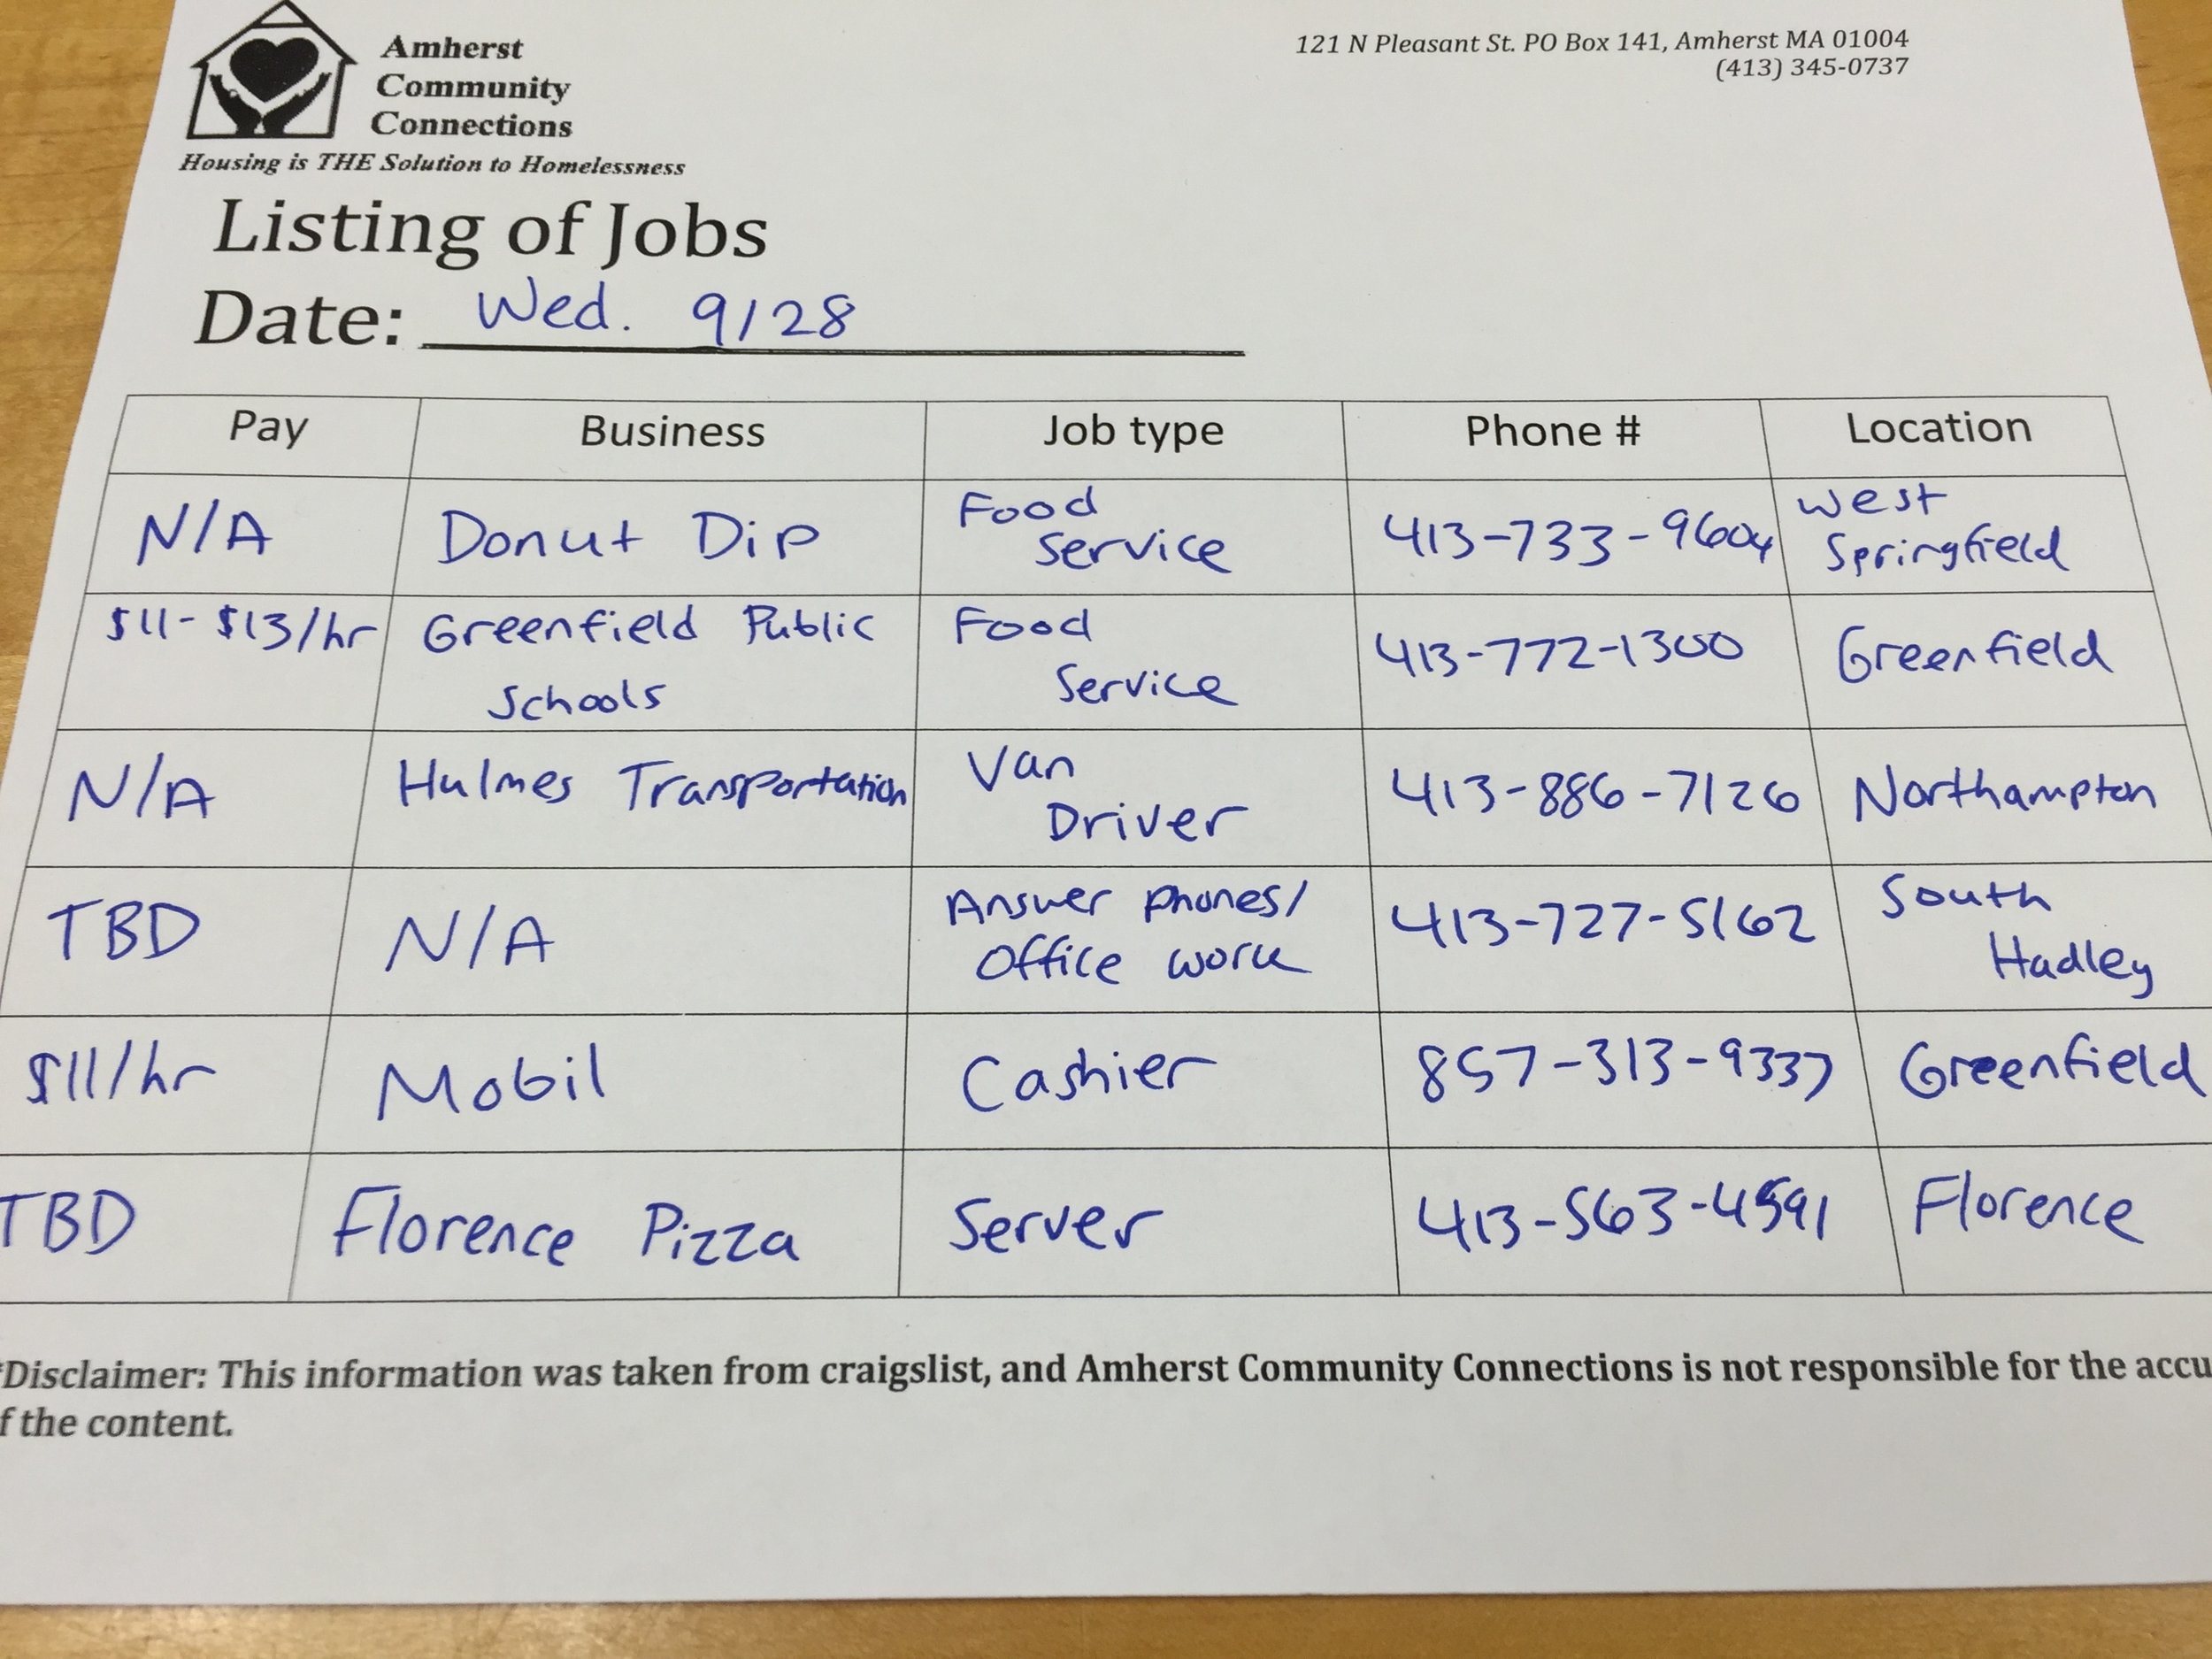 Amherst
Community
Connections
Housing is THE Solution to Homelessness
121 N Pleasant St. PO Box 141, Amherst MA 01004
(413) 345-0737
Listing of Jobs
Date: Wed. 9/28
Pay Business Job type Phone # Location
N/A Donut Dip Food Service 413-733-9604 West Springfield
$11-$13/hr Greenfield Public Schools Food Service 413-772-1300 Greenfield
N/A Hulmes Transportation Van Driver 413-886-7126 Northampton
TBD N/A Answer phones/ Office work 413-727-5162 South Hadley
$11/hr Mobil Cashier 857-313-9337 Greenfield
TBD Florence Pizza Server 413-563-4591 Florence
*Disclaimer: This information was taken from craigslist, and Amherst Community Connections is not responsible for the accu
f the content.